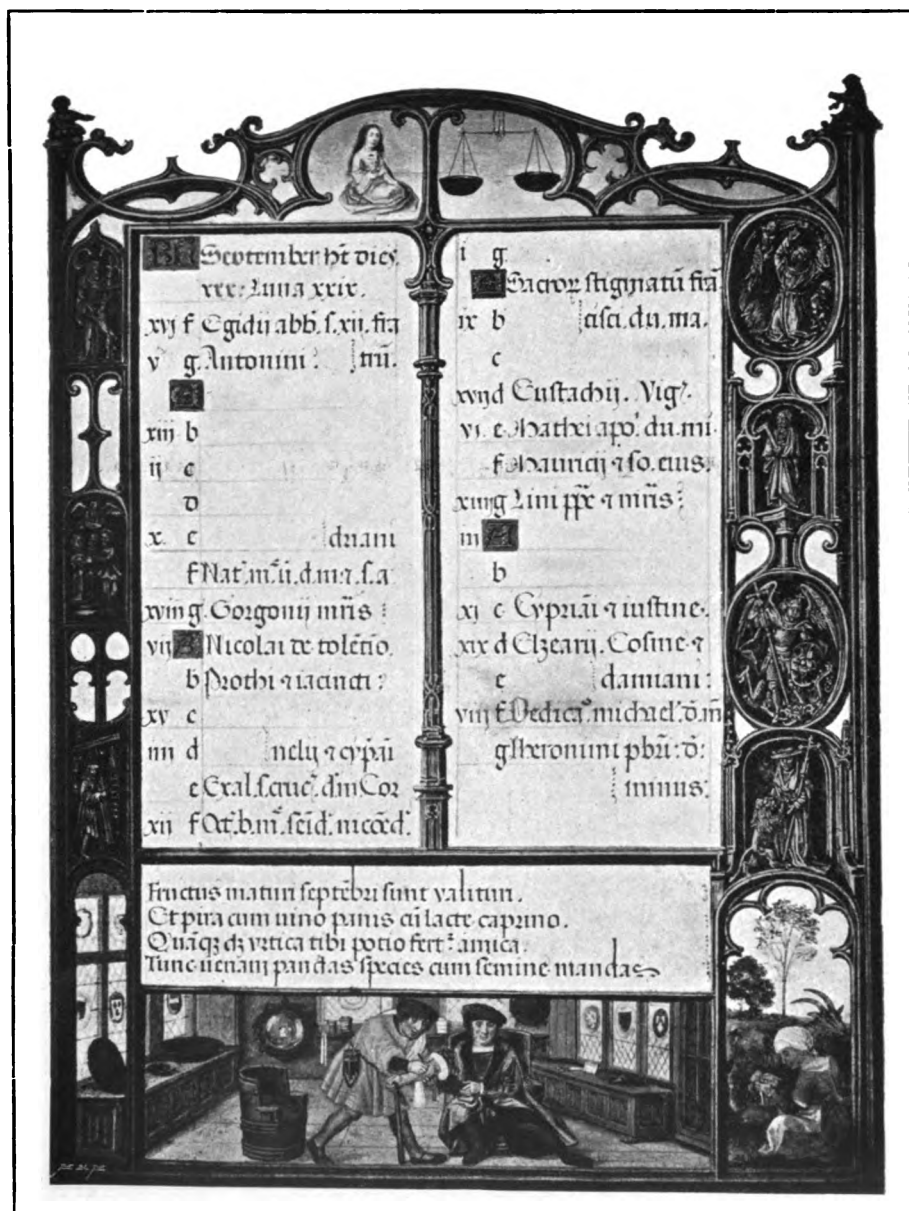 KL September ht dies
xxx. Luna xxix.
xvj f Egidii abb. s. xii. fra
v g Antonini: trū.
A
xiij b
ij c
d
x. e driani
f Nat. m. v. d. m. z. s. a
xviij g Gorgonij mris:
vij A Nicolai de tolētio.
b Prothi z iacincti:
xv c
iiij d nelij z cypri
e Exal. s. cruc. d. m Cor
xij f Oct. b. m.
i g
A Sacroꝝ stigmatū frā
ix b cisci. du. ma.
c
xvij d Eustachij. Vig.
vi. e Mathei apo. du. mi.
f Mauricij z so. eius.
xiiij g Lini ppe z mris:
iij A
b
xj c Cypriāi z iustine.
xix d Elzearij. Cosme z
e damiani:
viij f Dedica. michael. d. m
g Iheronimi pbri: d:
minus:
Fructus maturi septēbri sunt valituri.
Et pira cum uino panis cū lacte caprino.
Quāqꝫ dꝫ vrtica tibi potio fert amica.
Tunc uenam pandas species cum semine mandas